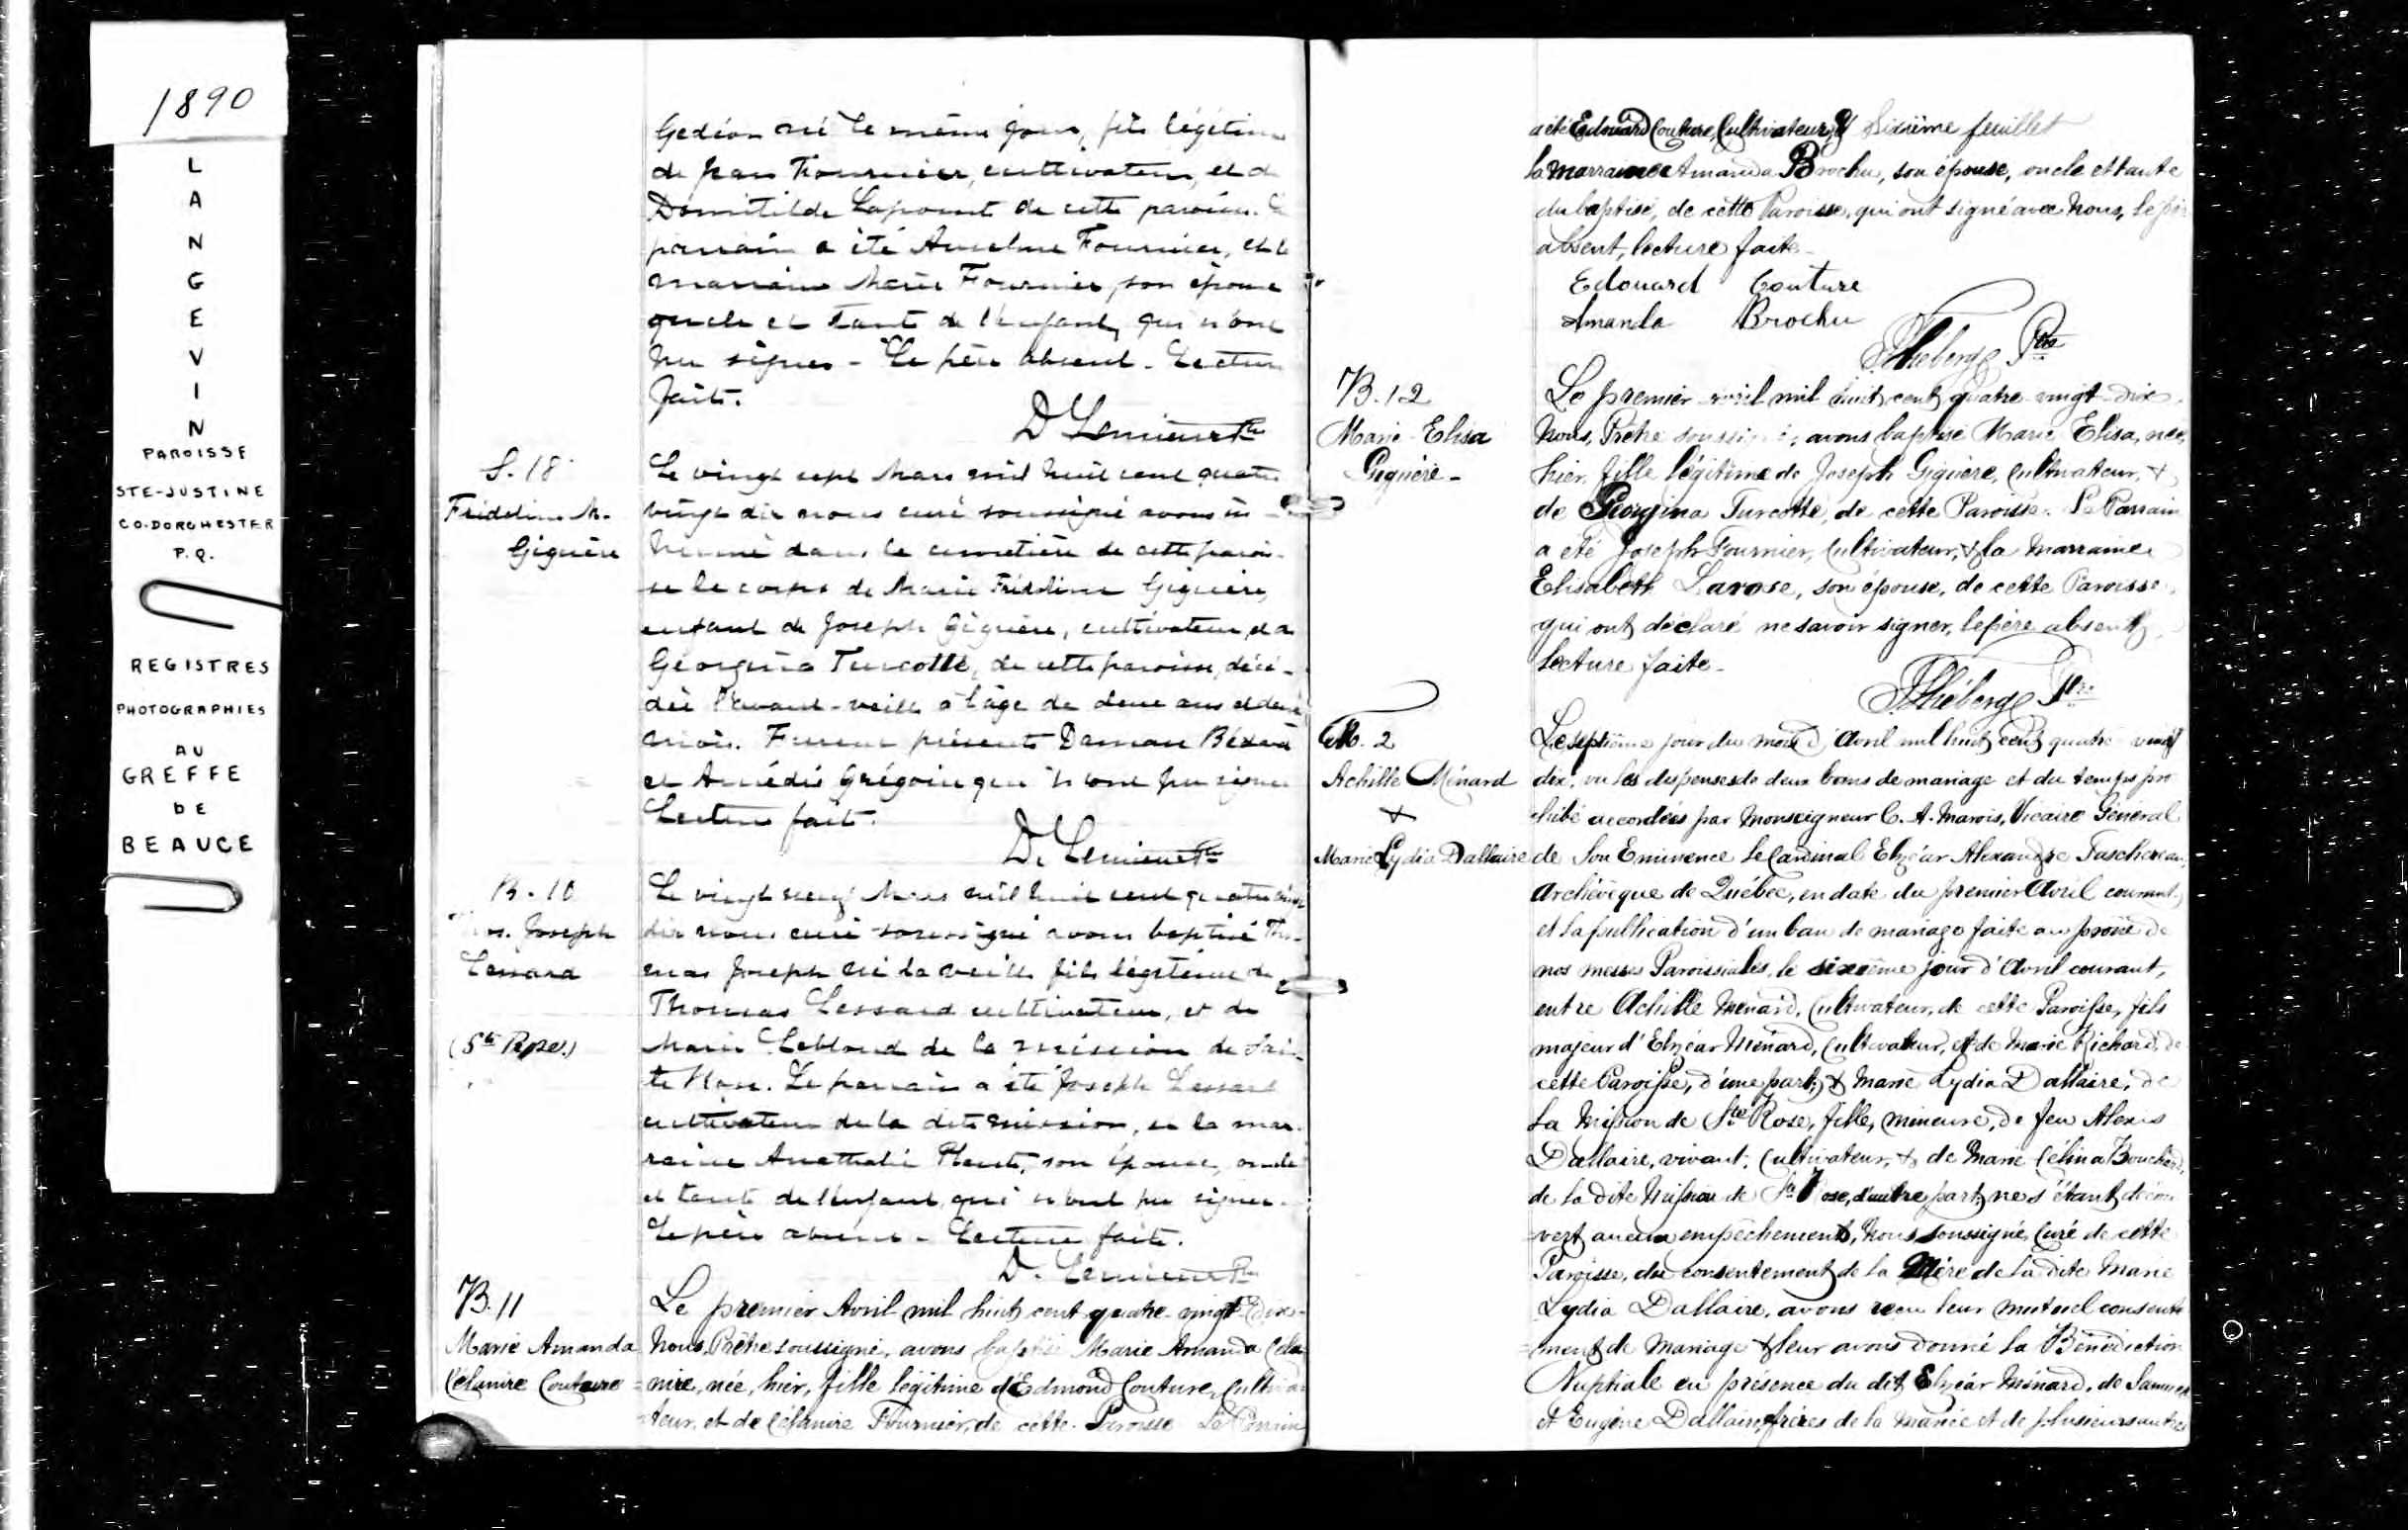 1890
L
A
N
G
E
V
I
N
PAROISSE
STE-JUSTINE
CO. DORCHESTER
P.Q.
REGISTRES
PHOTOGRAPHIES
AU
GREFFE
DE
BEAUCE
Gédéon né le même jour, fils légitime
de Jean Fournier, cultivateur, et de
Domitilde Lapoint de cette paroisse. Le
parrain a été Anselme Fournier, et la
marraine Marie Fournier, son épouse
oncle et tante de l'enfant, qui n'ont
pu signer - Le père absent - Lecture
faite.
D Lemieux Ptre
S. 18
Frideline M.
Giguère
Le vingt sept Mars mil huit cent quatre
vingt dix nous curé soussigné avons in
humé dans le cimetière de cette parois-
se le corps de Marie Frideline Giguère,
enfant de Joseph Giguère, cultivateur, et de
Georgina Turcotte, de cette paroisse, décé-
dée l'avant-veille à l'âge de deux ans et demi
mois. Furent présents Damase
et Amédée Grégoire qui n'ont pu signer
Lecture faite.
D. Lemieux Ptre
B. 10
Joseph
Lessard
(Ste Rose.)
Le vingt neuf Mars mil huit cent quatre vingt
dix nous curé soussigné avons baptisé Tho-
mas Joseph né la veille fils légitime de
Thomas Lessard cultivateur, et de
Marie Leblond de la mission de Sain-
te Rose. Le parrain a été Joseph Lessard
cultivateur de la dite mission, et la mar-
raine Anathalie Plante, son épouse, oncle
et tante de l'enfant, qui n'ont pu signer.
Le père absent - Lecture faite.
D. Lemieux Ptre
B. 11
Marie Amanda
Célanire Couture
Le premier Avril mil huit cent quatre-vingt-Dix-
Nous, Prêtre soussigné, avons baptisé Marie Amanda Céla
nire, née, hier, fille légitime d'Edmond Couture, Cultiva
teur, et de Célanire Fournier, de cette Paroisse Le Parrain
a été Edouard Couture, Cultivateur, & Sixième feuillet
la marraine Amanda Brochu, son épouse, oncle et tante
du baptisé, de cette Paroisse, qui ont signé avec Nous, le père
absent, lecture faite -
Edouard Couture
Amanda Brochu
Théberge Ptre
B. 12
Marie-Elisa
Giguère -
Le premier avril mil huit cent quatre-vingt-dix
Nous, Prêtre soussigné, avons baptisé Marie Elisa, née,
hier, fille légitime de Joseph Giguère, Cultivateur, &
de Georgina Turcotte, de cette Paroisse. Le Parrain
a été Joseph Fournier, Cultivateur, & la Marraine
Elisabeth Larose, son épouse, de cette Paroisse,
qui ont déclaré ne savoir signer, le père absent,
lecture faite -
Théberge Ptre
M. 2
Achille Ménard
&
Marie Lydia Dallaire
Le septième jour du mois d'Avril mil huit cent quatre-vingt
dix, vu les dispenses de deux bans de mariage et du temps pro
hibé accordées par Monseigneur C. A. Marois, Vicaire Général
de Son Eminence Le Cardinal Elzéar Alexandre Taschereau,
Archevêque de Québec, en date du premier Avril courant,
et la publication d'un ban de mariage faite au prône de
nos messes Paroissiales, le sixième jour d'Avril courant,
entre Achille Ménard, Cultivateur, de cette Paroisse, fils
majeur d'Elzéar Ménard, Cultivateur, et de Marie Richard, de
cette Paroisse, d'une part; & Marie Lydia Dallaire, de
La Mission de Ste Rose, fille, mineure, de feu Alexis
Dallaire, vivant, Cultivateur, & de Marie Célina Bouchard,
de la dite Mission de Ste Rose, d'autre part; ne s'étant décou
vert aucun empêchement, Nous, soussigné, Curé de cette
Paroisse, du consentement de la Mère de la dite Marie
Lydia Dallaire, avons reçu leur mutuel consente
ment de Mariage & leur avons donné la Bénédiction
Nuptiale en présence du dit Elzéar Ménard, de Samuel
et Eugène Dallaire, frères de la mariée et de plusieurs autres